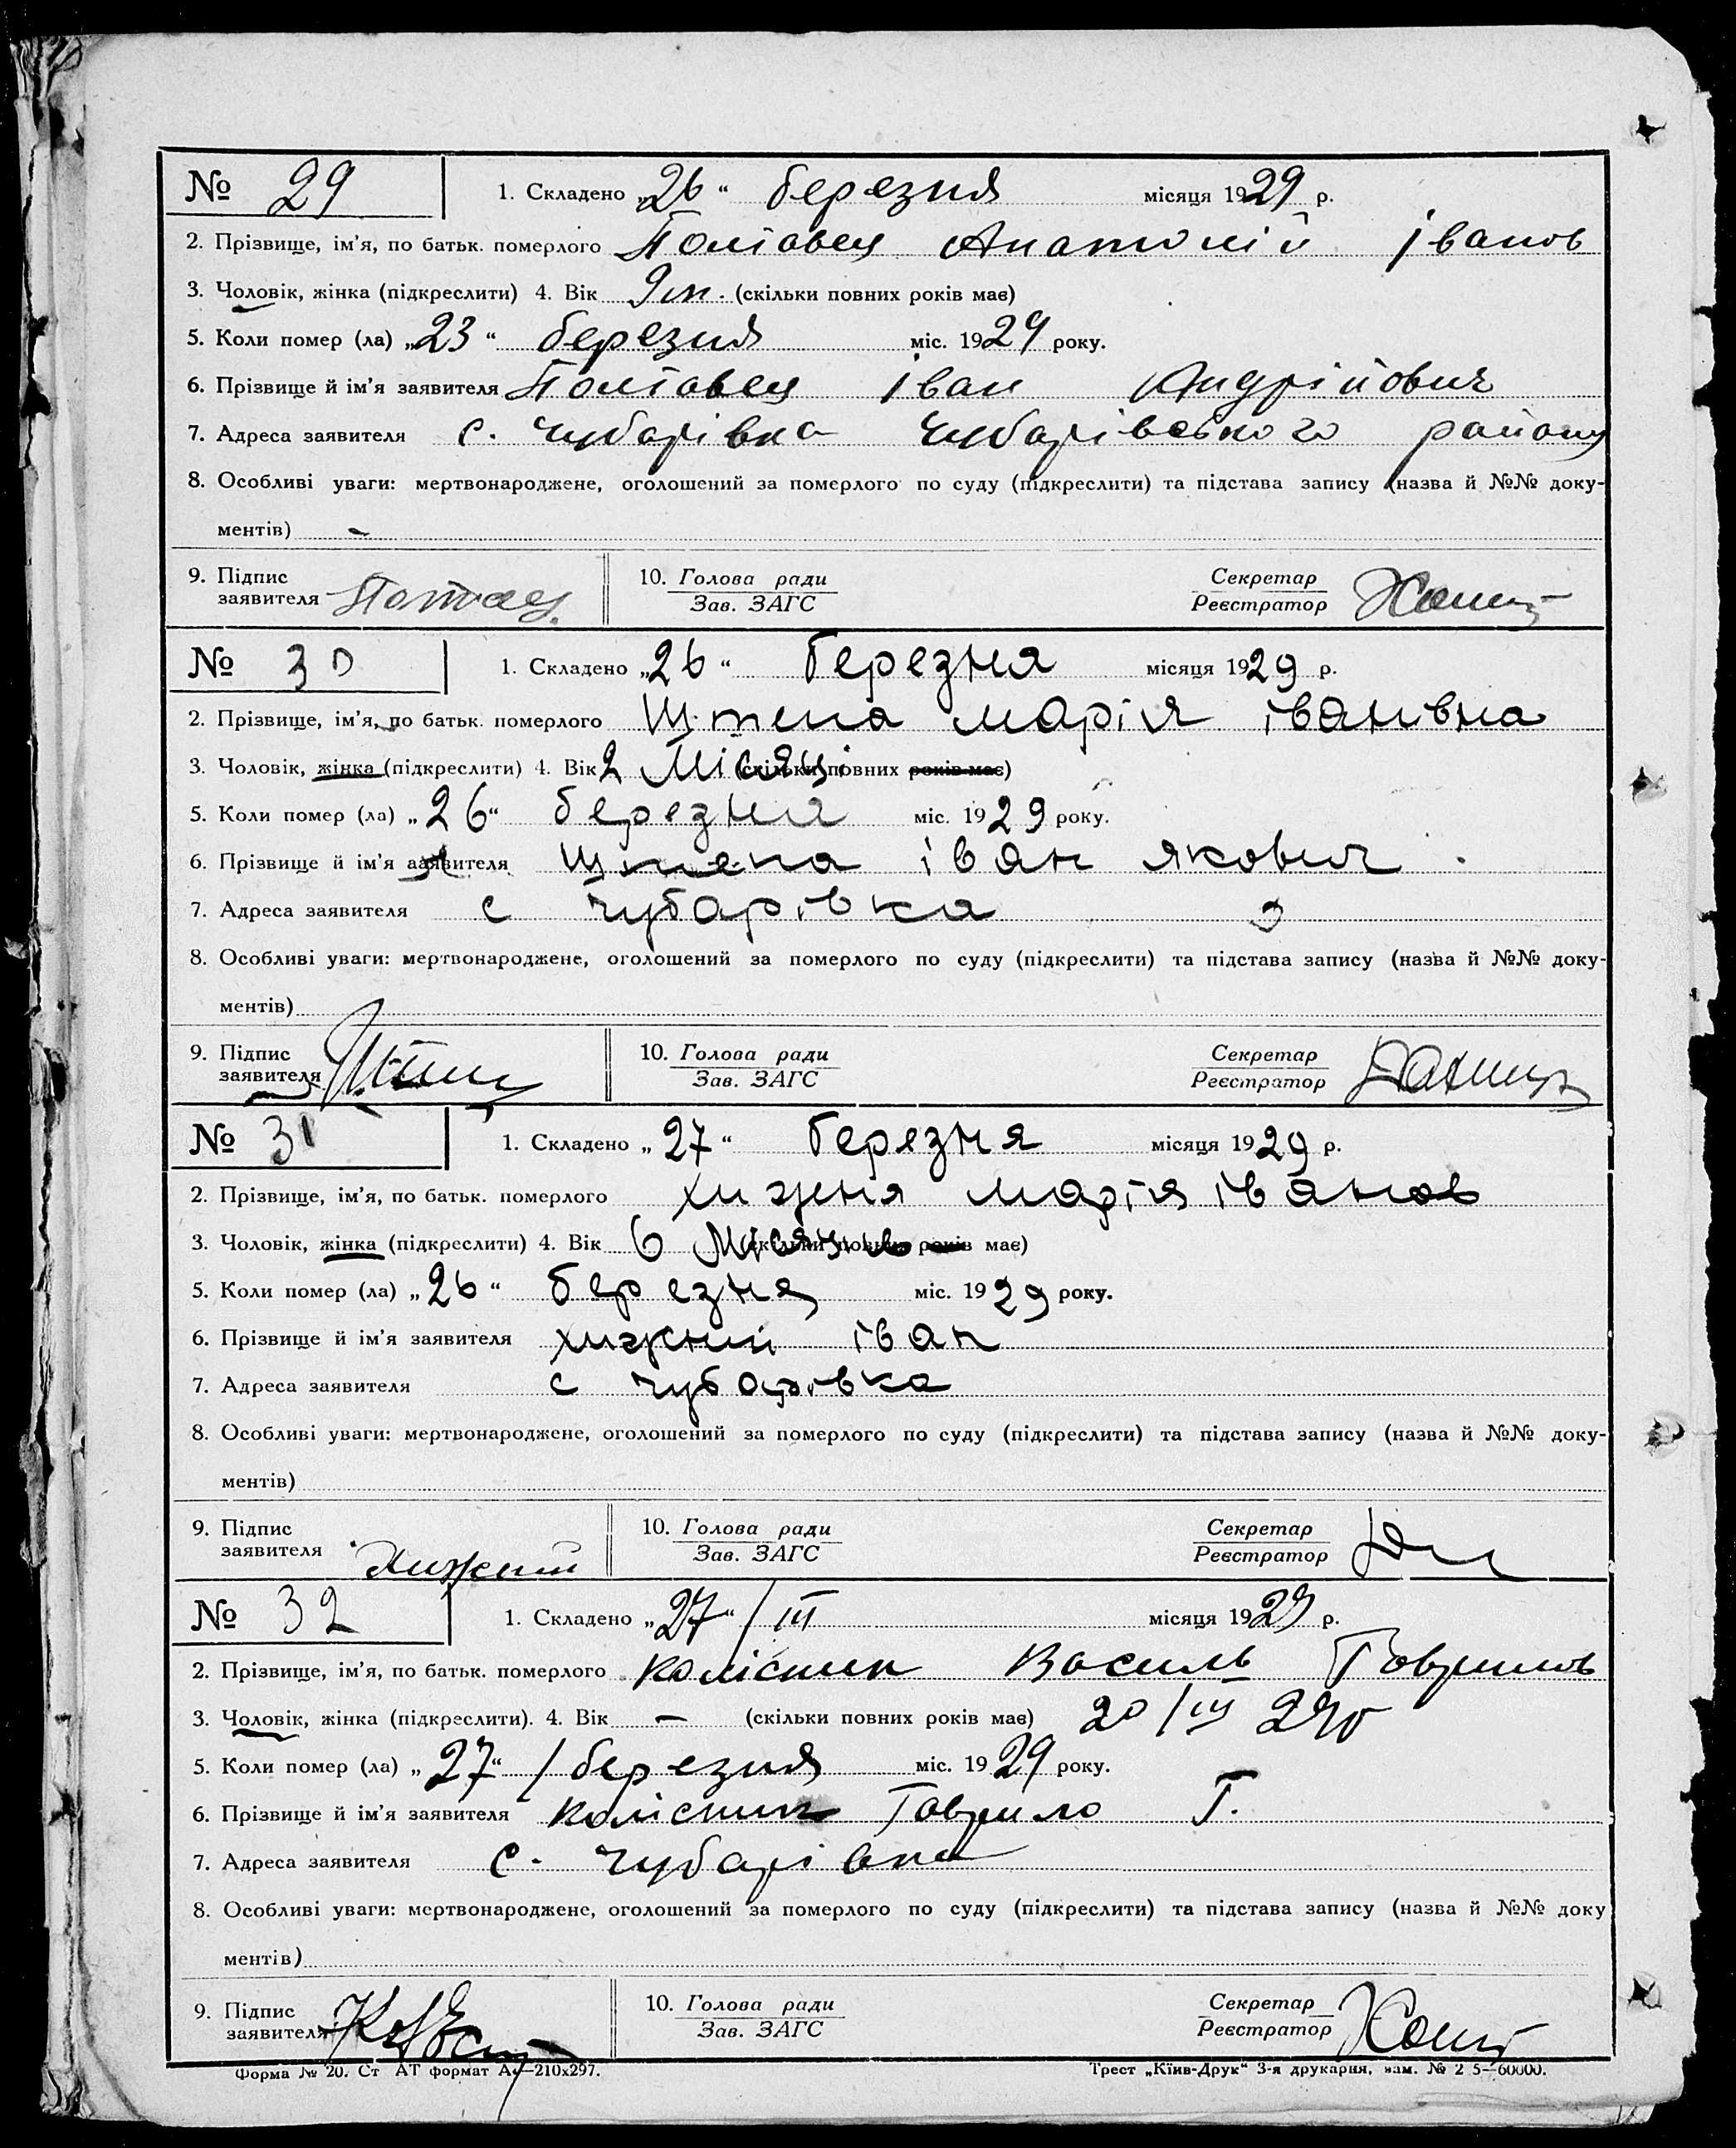 № 29 1. Складено „26“ березня місяця 1929 р.
2. Прізвище, ім'я, по батьк. померлого Полтавец Анатолій Іванов
3. Чоловік, жінка (підкреслити) 4. Вік 9 м. (скільки повних років має)
5. Коли помер (ла) „23“ березня міс. 1929 року.
6. Прізвище й ім'я заявителя Полтавец Іван Андрійович
7. Адреса заявителя с. Чубарівка Чубарівського району
8. Особливі уваги: мертвонароджене, оголошений за померлого по суду (підкреслити) та підстава запису (назва й №№ доку-
ментів) -
9. Підпис заявителя 10. Голова ради Зав. ЗАГС Секретар Реєстратор
№ 30 1. Складено „26“ березня місяця 1929 р.
2. Прізвище, ім'я, по батьк. померлого марія іванівна
3. Чоловік, жінка (підкреслити) 4. Вік 2 Місяці (скільки повних років має)
5. Коли помер (ла) „26“ березня міс. 1929 року.
6. Прізвище й ім'я заявителя іван якович
7. Адреса заявителя с Чубарівка
8. Особливі уваги: мертвонароджене, оголошений за померлого по суду (підкреслити) та підстава запису (назва й №№ доку-
ментів)
9. Підпис заявителя 10. Голова ради Зав. ЗАГС Секретар Реєстратор
№ 31 1. Складено „27“ березня місяця 1929 р.
2. Прізвище, ім'я, по батьк. померлого хижня марія іванов
3. Чоловік, жінка (підкреслити) 4. Вік 6 Місяців (скільки повних років має)
5. Коли помер (ла) „26“ березня міс. 1929 року.
6. Прізвище й ім'я заявителя хижний іван
7. Адреса заявителя с чубарівка
8. Особливі уваги: мертвонароджене, оголошений за померлого по суду (підкреслити) та підстава запису (назва й №№ доку-
ментів)
9. Підпис заявителя Хижний 10. Голова ради Зав. ЗАГС Секретар Реєстратор
№ 32 1. Складено „27“ / III місяця 1929 р.
2. Прізвище, ім'я, по батьк. померлого Колісник Василь Гаврилов
3. Чоловік, жінка (підкреслити). 4. Вік — (скільки повних років має) 20/III 29р
5. Коли помер (ла) „27“ / березня міс. 1929 року.
6. Прізвище й ім'я заявителя Колісник Гаврило Г.
7. Адреса заявителя с. Чубарівка
8. Особливі уваги: мертвонароджене, оголошений за померлого по суду (підкреслити) та підстава запису (назва й №№ доку
ментів)
9. Підпис заявителя 10. Голова ради Зав. ЗАГС Секретар Реєстратор
Форма № 20. Ст АТ формат А4—210x297. Трест „Київ-Друк“ 3-я друкарня, зам. № 2 5—60000.